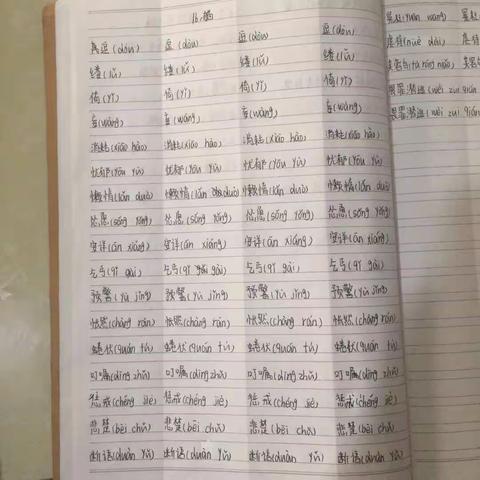 16.猫
逗(dòu) 逗(dòu) 逗(dòu)
缕(lǚ) 缕(lǚ) 缕(lǚ) 缕(lǚ)
倚(yǐ) 倚(yǐ) 倚(yǐ) 倚(yǐ)
妄(wàng) 妄(wàng) 妄(wàng) 妄(wàng)
消耗(xiāo hào) 消耗(xiāo hào) 消耗(xiāo hào) 消耗(xiāo hào)
忧郁(yōu yù) 忧郁(yōu yù) 忧郁(yōu yù) 忧郁(yōu yù)
懒惰(lǎn duò) 懒惰(lǎn duò) 懒惰(lǎn duò) 懒惰(lǎn duò)
怂恿(sǒng yǒng) 怂恿(sǒng yǒng) 怂恿(sǒng yǒng) 怂恿(sǒng yǒng)
安详(ān xiáng) 安详(ān xiáng) 安详(ān xiáng) 安详(ān xiáng)
乞丐(qǐ gài) 乞丐(qǐ gài) 乞丐(qǐ gài) 乞丐(qǐ gài)
预警(yù jǐng) 预警(yù jǐng) 预警(yù jǐng) 预警(yù jǐng)
怅然(chàng rán) 怅然(chàng rán) 怅然(chàng rán) 怅然(chàng rán)
蜷伏(quán fú) 蜷伏(quán fú) 蜷伏(quán fú) 蜷伏(quán fú)
叮嘱(dīng zhǔ) 叮嘱(dīng zhǔ) 叮嘱(dīng zhǔ) 叮嘱(dīng zhǔ)
惩戒(chéng jiè) 惩戒(chéng jiè) 惩戒(chéng jiè) 惩戒(chéng jiè)
悲楚(bēi chǔ) 悲楚(bēi chǔ) 悲楚(bēi chǔ) 悲楚(bēi chǔ)
断语(duàn yǔ) 断语(duàn yǔ) 断语(duàn yǔ) 断语(duàn yǔ)
冤枉(yuān wang)
虐待(nüè dài)
畏罪潜逃(wèi zuì qián
畏罪潜逃(wèi zuì qián